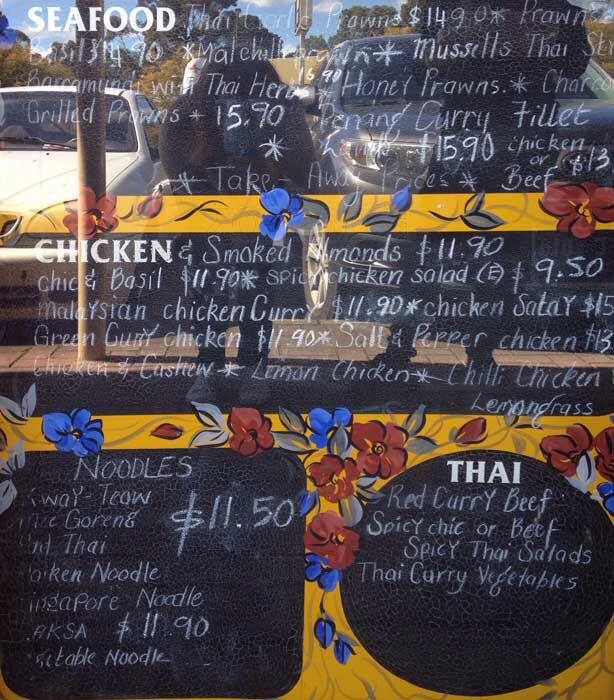 SEAFOOD Thai Garlic Prawns $14.90* Prawn
Basil $14.90 * * Mussells Thai St
Barramundi with Thai Herbs 16.90 * Honey Prawns. * Charco
Grilled Prawns * 15.90 Penang Curry Fillet
* Lamb $15.90 chicken or Beef $13
* Take-Away Prices *
CHICKEN & Smoked Almonds $11.90
chic & Basil $11.90* Spicy chicken salad (E) $9.50
Malaysian chicken Curry $11.90* chicken Satay $13
Green Curry chicken $11.90* Salt & Pepper chicken $13
Chicken & Cashew * Lemon Chicken * Chilli Chicken
Lemongrass
NOODLES
way Teow
Goreng $11.50
Thai
icken Noodle
ingapore Noodle
AKSA $11.90
etable Noodle
THAI
Red Curry Beef
Spicy chic or Beef
Spicy Thai Salads
Thai Curry Vegetables